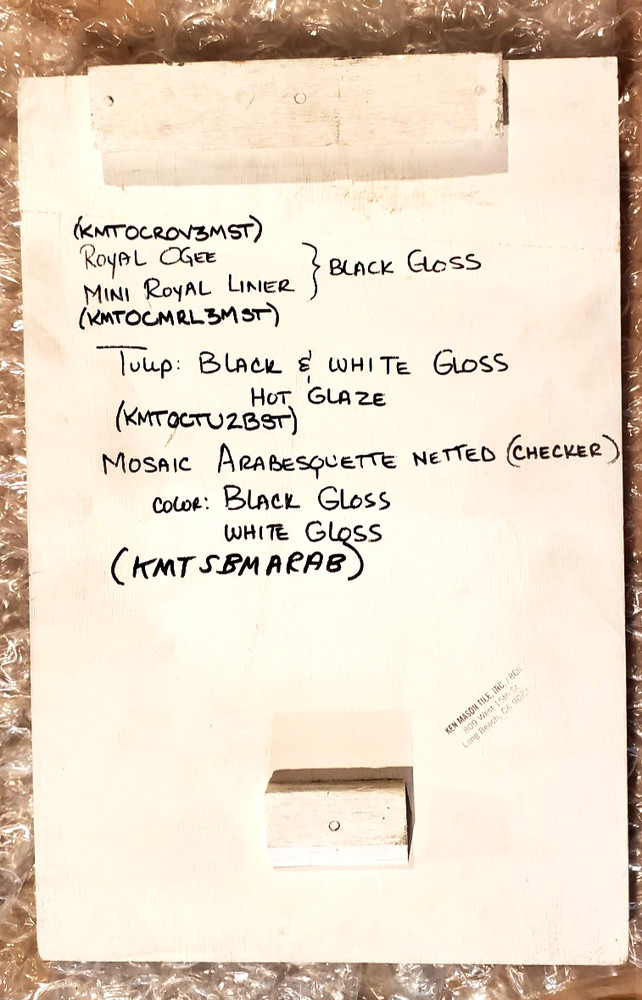 (KMTOCROV3MST)
ROYAL OGEE
MINI ROYAL LINER } BLACK GLOSS
(KMTOCMRL3MST)
TULIP: BLACK & WHITE GLOSS
HOT GLAZE
(KMTOCTU2BST)
MOSAIC ARABESQUETTE NETTED (CHECKER)
COLOR: BLACK GLOSS
WHITE GLOSS
(KMTSBMARAB)
KEN MASON TILE, INC. /
809 West 15th St.
Long Beach, CA